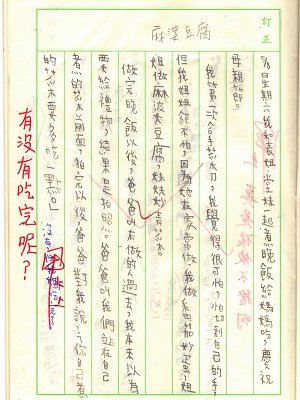 麻婆豆腐
訂正
5/8日星期六我和表姐、堂妹一起煮晚飯給媽媽吃,慶祝
母親節。
我第一次拿手菜刀,我覺得很可怕,怕切到自己的手,
但我姐姐卻不怕,因為她在家常做。我做番茄炒蛋,姐
姐做麻婆豆腐,妹妹炒青菜。
做完晚飯以後,爸爸叫有做的人過去,我本來以為
要給禮物,結果是拍照。爸爸叫我們站在自己
煮的菜前面,拍完以後,爸爸對我說:「你自己煮
的菜要多吃一點。」
有沒有吃完呢?